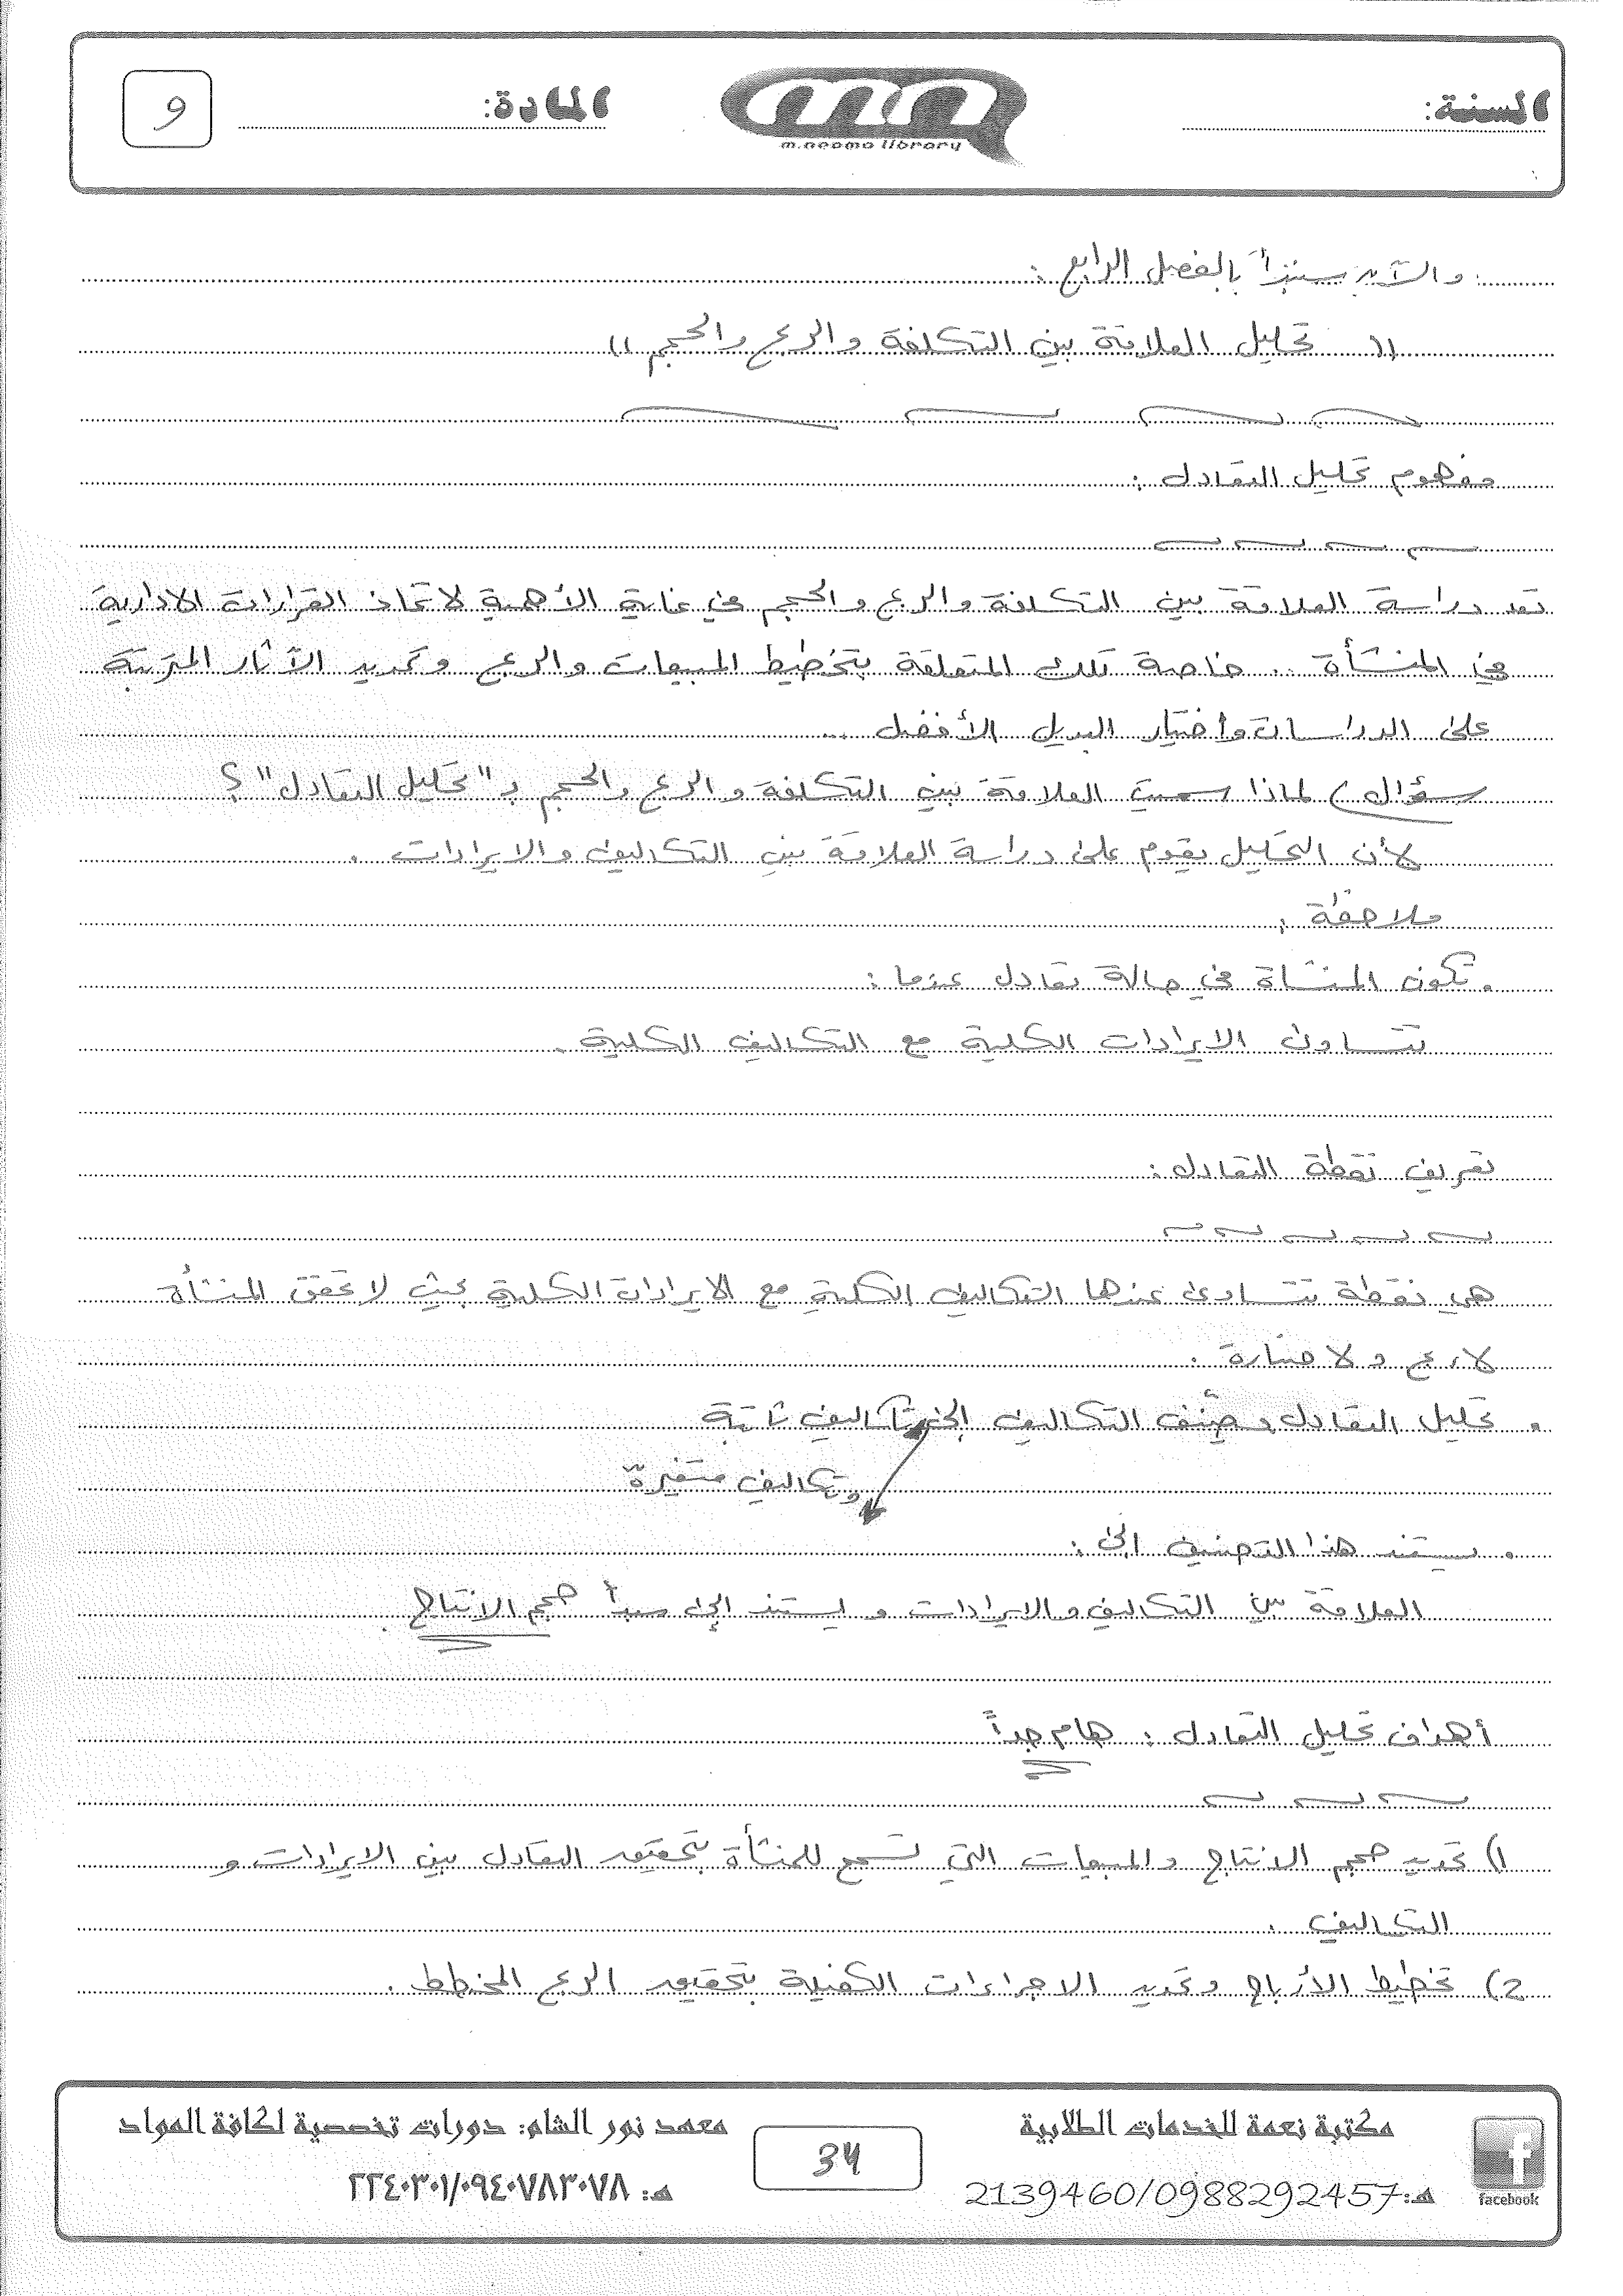 السنة:
m.neama library
المادة:
9
والآن سنبدأ بالفصل الرابع:
(( تحليل العلاقة بين التكلفة والربح والحجم ))
مفهوم تحليل التعادل:
تعد دراسة العلاقة بين التكلفة والربح والحجم في غاية الأهمية لاتخاذ القرارات الادارية
في المنشأة .. خاصة تلك المتعلقة بتخطيط المبيعات والربح وتحديد الآثار المترتبة
على الدراسات واختيار البديل الأفضل ...
سؤال) لماذا سميت العلاقة بين التكلفة والربح والحجم بـ "تحليل التعادل" ؟
لأن التحليل يقوم على دراسة العلاقة بين التكاليف والايرادات .
ملاحظة:
. تكون المنشأة في حالة تعادل عندما:
تتساوى الايرادات الكلية مع التكاليف الكلية .
تعريف نقطة التعادل:
هي نقطة تتساوى عندها التكاليف الكلية مع الايرادات الكلية بحيث لا تحقق المنشأة
لا ربح ولا خسارة .
. تحليل التعادل يصنف التكاليف إلى تكاليف ثابتة
وتكاليف متغيرة
. يستند هذا التصنيف الى:
العلاقة بين التكاليف والايرادات و يستند إلى مبدأ حجم الانتاج .
أهداف تحليل التعادل : هام جداً
1) تحديد حجم الانتاج والمبيعات التي تسمح للمنشأة بتحقيق التعادل بين الايرادات و
التكاليف .
2) تخطيط الأرباح وتحديد الاجراءات الكفيلة بتحقيق الربح المخطط .
facebook
مكتبة نعمة للخدمات الطلابية
هـ: 2139460/0988292457
34
معهد نور الشام: دورات تخصصية لكافة المواد
هـ: ٢٢٤٠٣٠١/٠٩٤٠٧٨٣٠٧٨